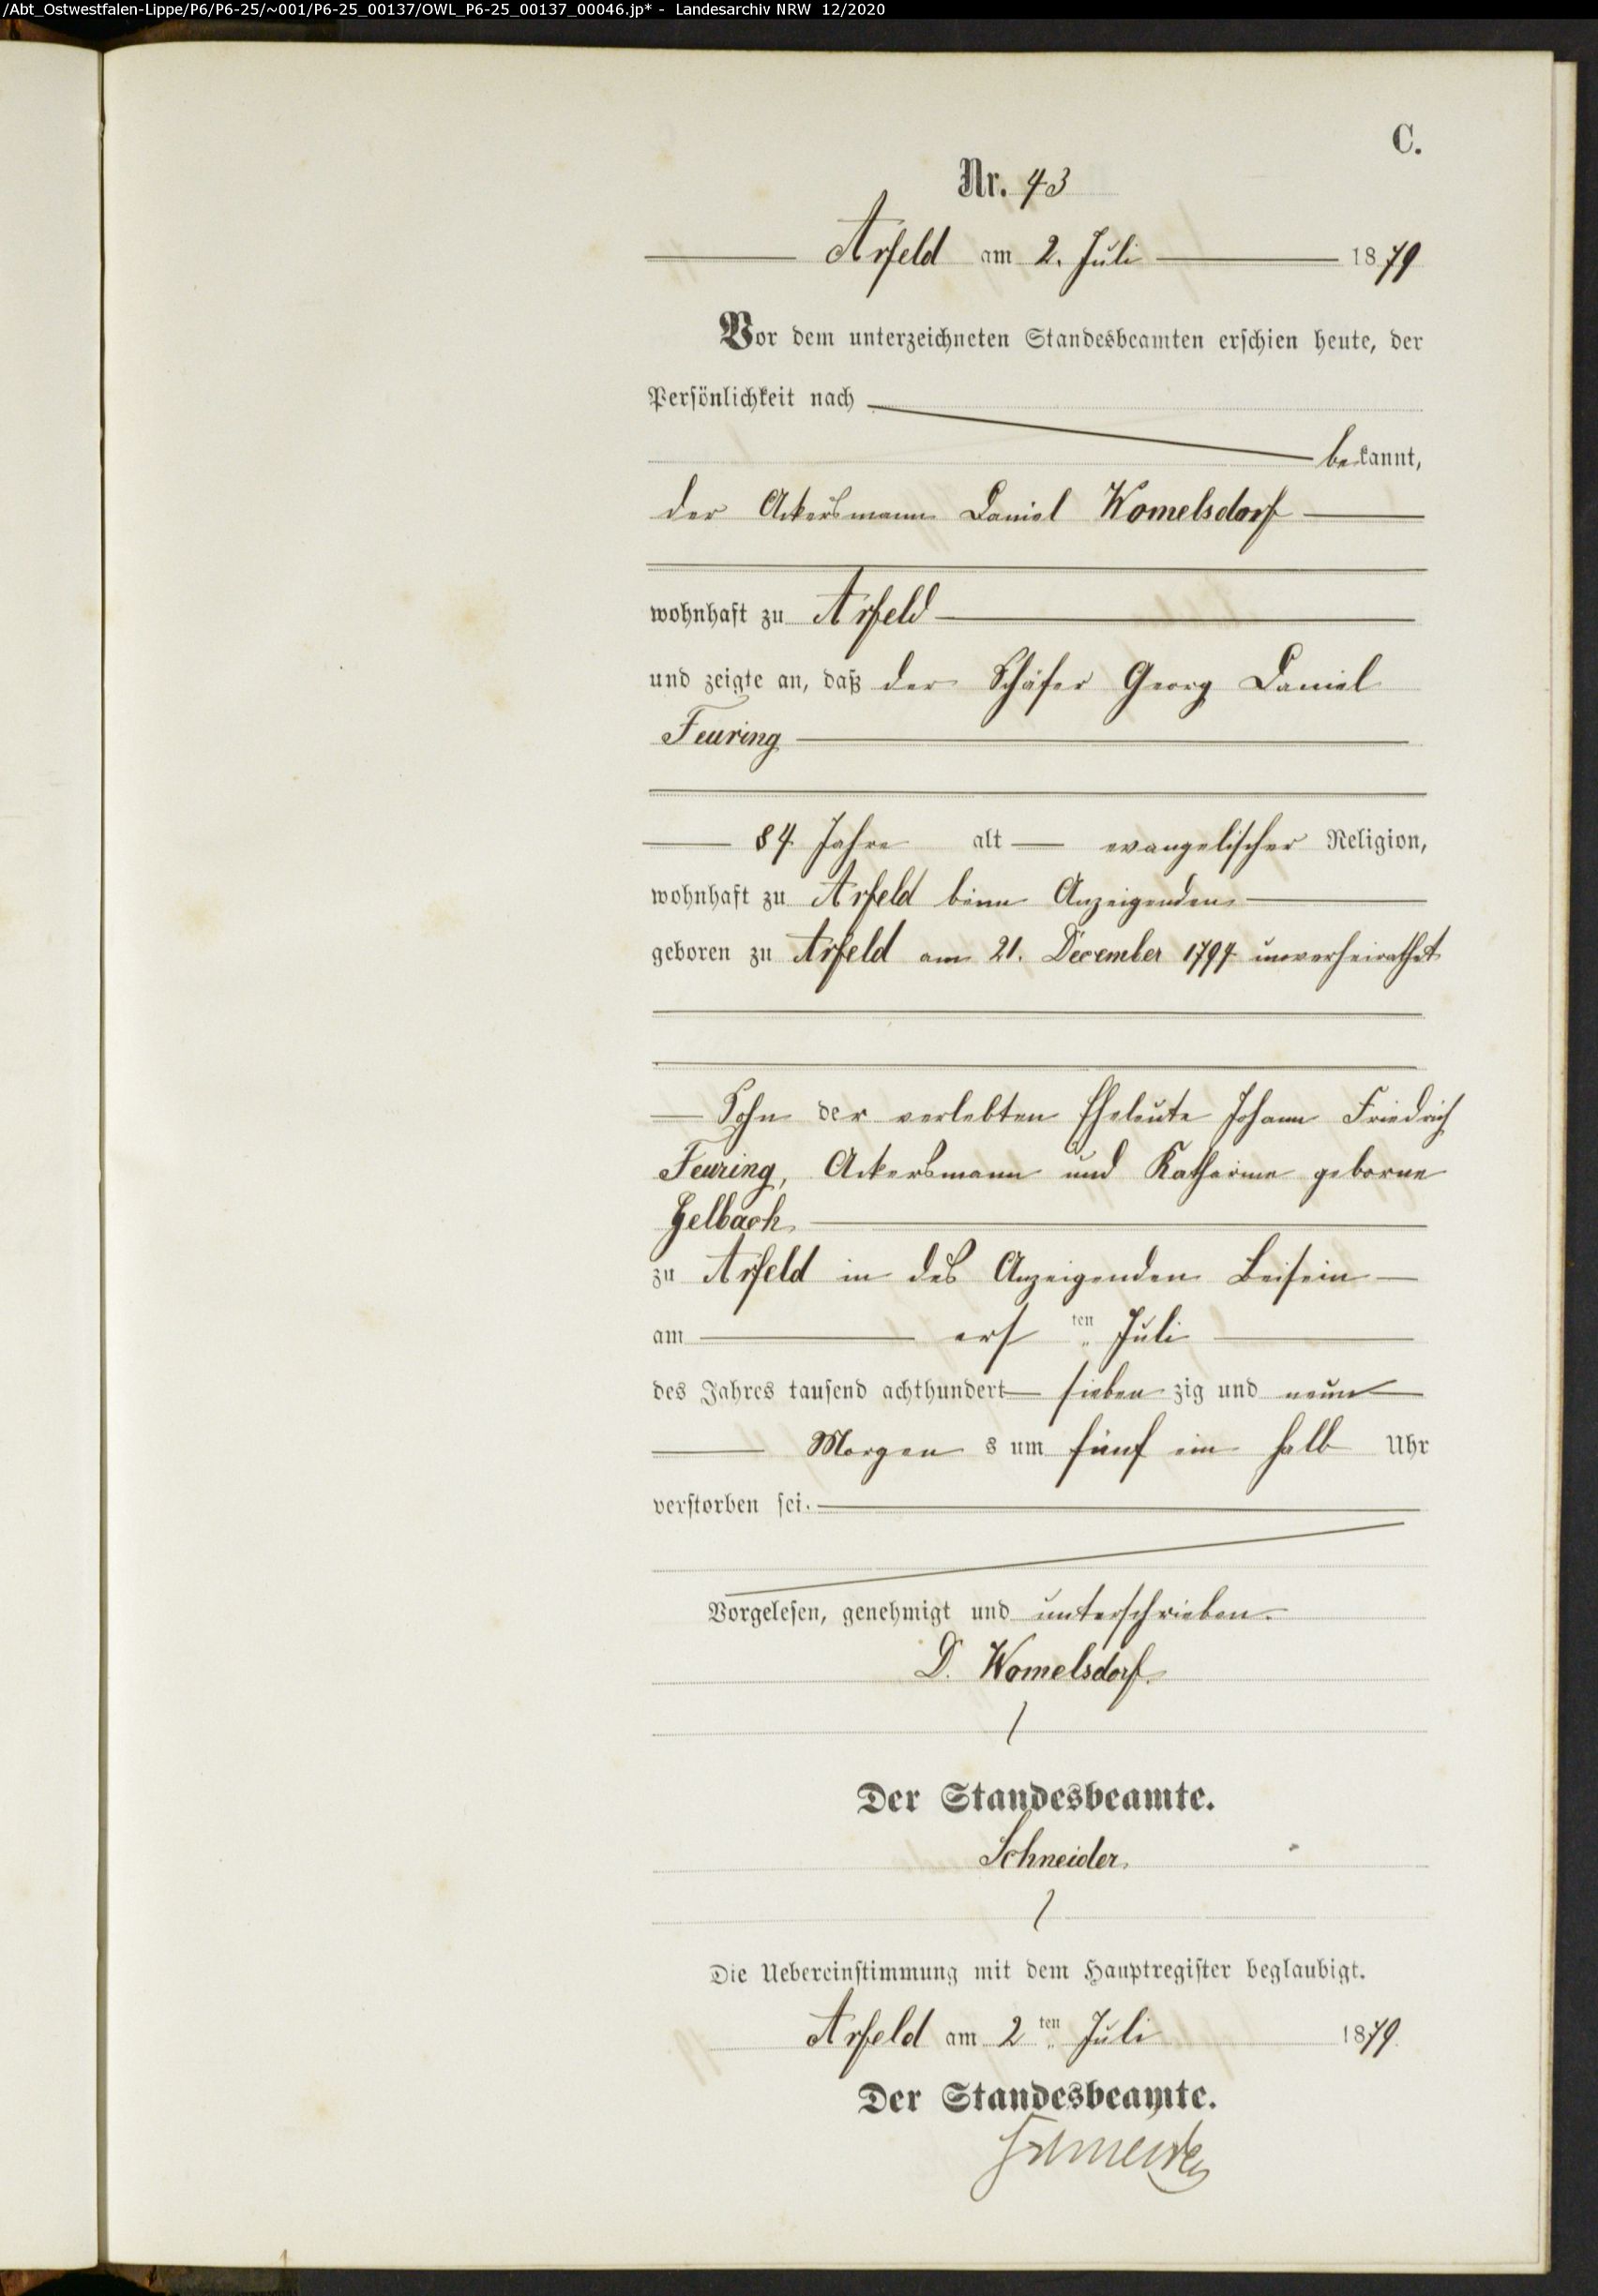 /Abt_Ostwestfalen-Lippe/P6/P6-25/~001/P6-25_00137/OWL_P6-25_00137_00046.jp* - Landesarchiv NRW 12/2020
C.
Nr. 43
Arfeld am 2. Juli 1879
Vor dem unterzeichneten Standesbeamten erschien heute, der
Persönlichkeit nach
bekannt,
der Ackersmann Daniel Womelsdorf
wohnhaft zu Arfeld
und zeigte an, daß der Schäfer Georg Daniel
Feuring
84 Jahre alt evangelischer Religion,
wohnhaft zu Arfeld beim Anzeigenden
geboren zu Arfeld am 21. December 1794 unverheirathet
Sohn der verlebten Eheleute Johann Friedrich
Feuring, Ackersmann und Katharine geborne
Helbach
zu Arfeld in des Anzeigenden Beisein
am ersten Juli
des Jahres tausend achthundert siebenzig und neun
Morgens um fünf ein halb Uhr
verstorben sei.
Vorgelesen, genehmigt und unterschrieben.
D. Womelsdorf.
Der Standesbeamte.
Schneider.
Die Uebereinstimmung mit dem Hauptregister beglaubigt.
Arfeld am 2ten Juli 1879.
Der Standesbeamte.
Schneider